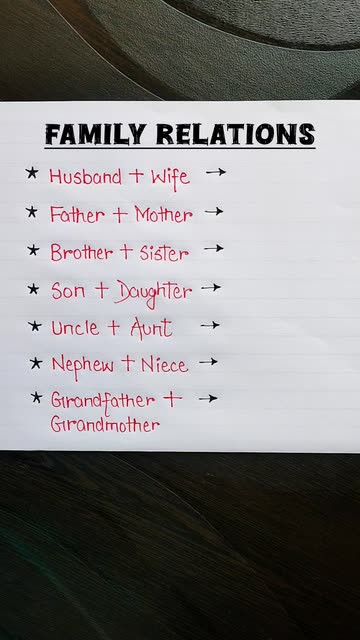 FAMILY RELATIONS
* Husband + Wife →
* Father + Mother →
* Brother + Sister →
* Son + Daughter →
* Uncle + Aunt →
* Nephew + Niece →
* Grandfather + →
Grandmother